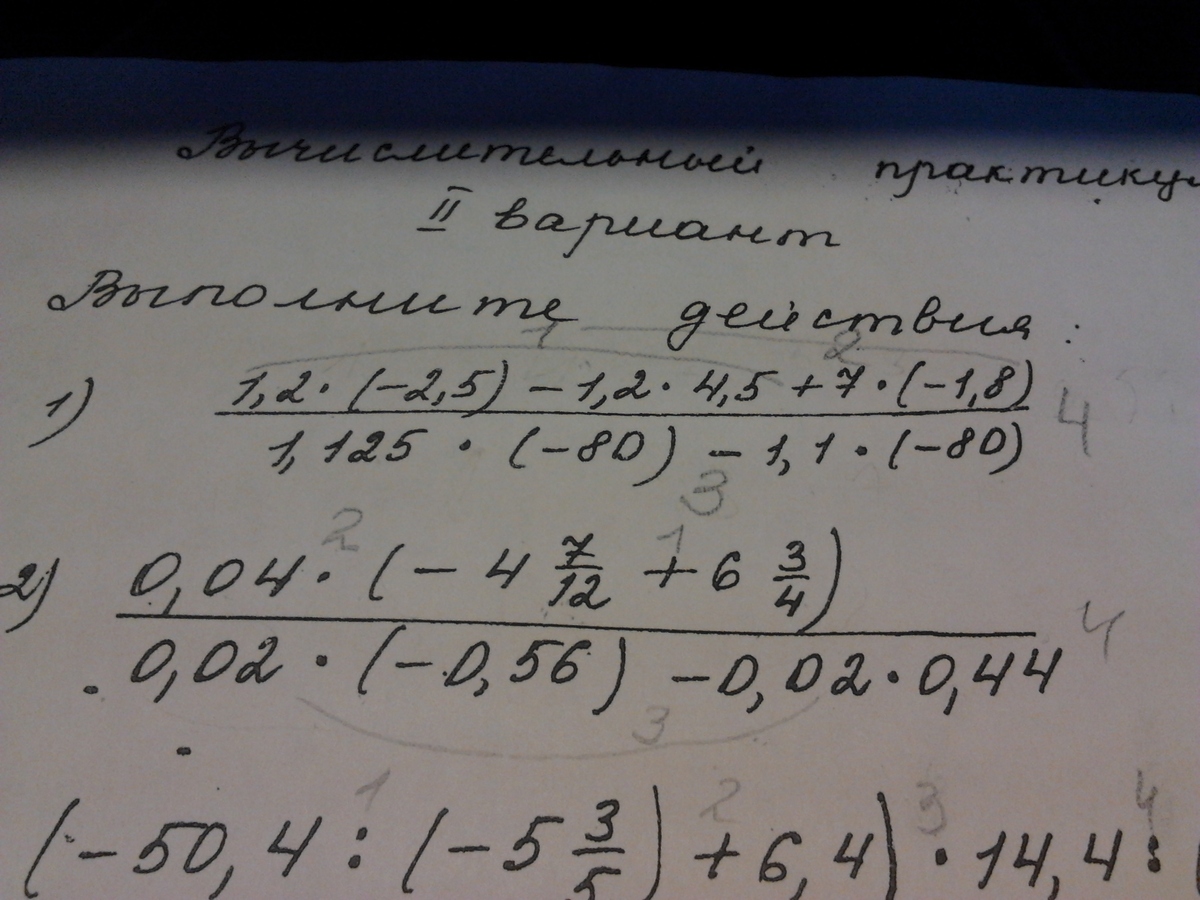 Вычислительный практикум
II вариант
Выполните действия:
1 2
1) 1,2 · (−2,5) − 1,2 · 4,5 + 7 · (−1,8) 4
1,125 · (−80) − 1,1 · (−80)
3
2 1
2) 0,04 · (− 4 7/12 + 6 3/4)
0,02 · (−0,56) − 0,02 · 0,44 4
3
1 2 3 4
(−50,4 : (−5 3/5) + 6,4) · 14,4 : (